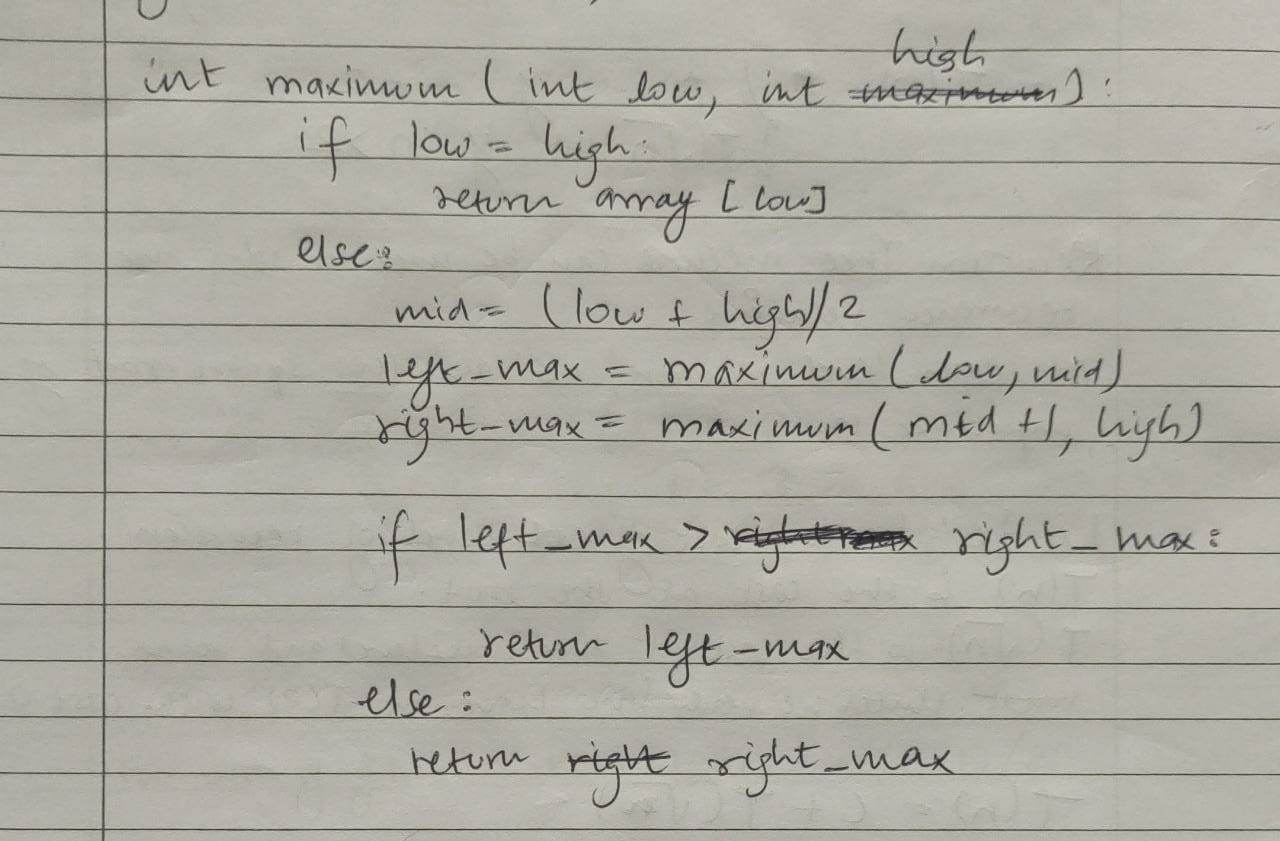 high
int maximum ( int low, int maximum ) :
if low = high :
return array [ low ]
else :
mid = ( low + high ) / 2
left_max = maximum ( low, mid )
right_max = maximum ( mid +1, high )
if left_max > rightmax right_max :
return left_max
else :
return right right_max